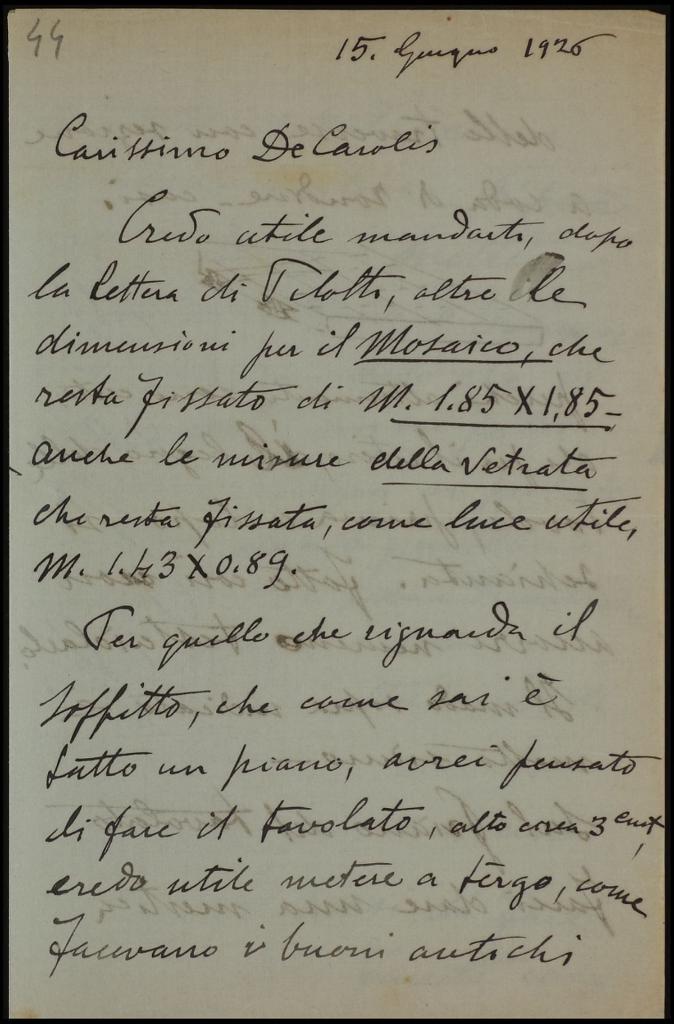 44
15. Giugno 1926
Carissimo De Carolis
Credo utile mandarti, dopo
la lettera di Pilotti, oltre le
dimensioni per il Mosaico, che
resta fissato di M. 1.85 X 1,85-
anche le misure della Vetrata
che resta fissata, come luce utile,
M. 1.43 X 0.89.
Per quello che riguarda il
soffitto, che come sai è
tutto un piano, avrei pensato
di fare il tavolato, alto circa 3 cent,
credo utile metere a tergo, come
facevano i buoni antichi